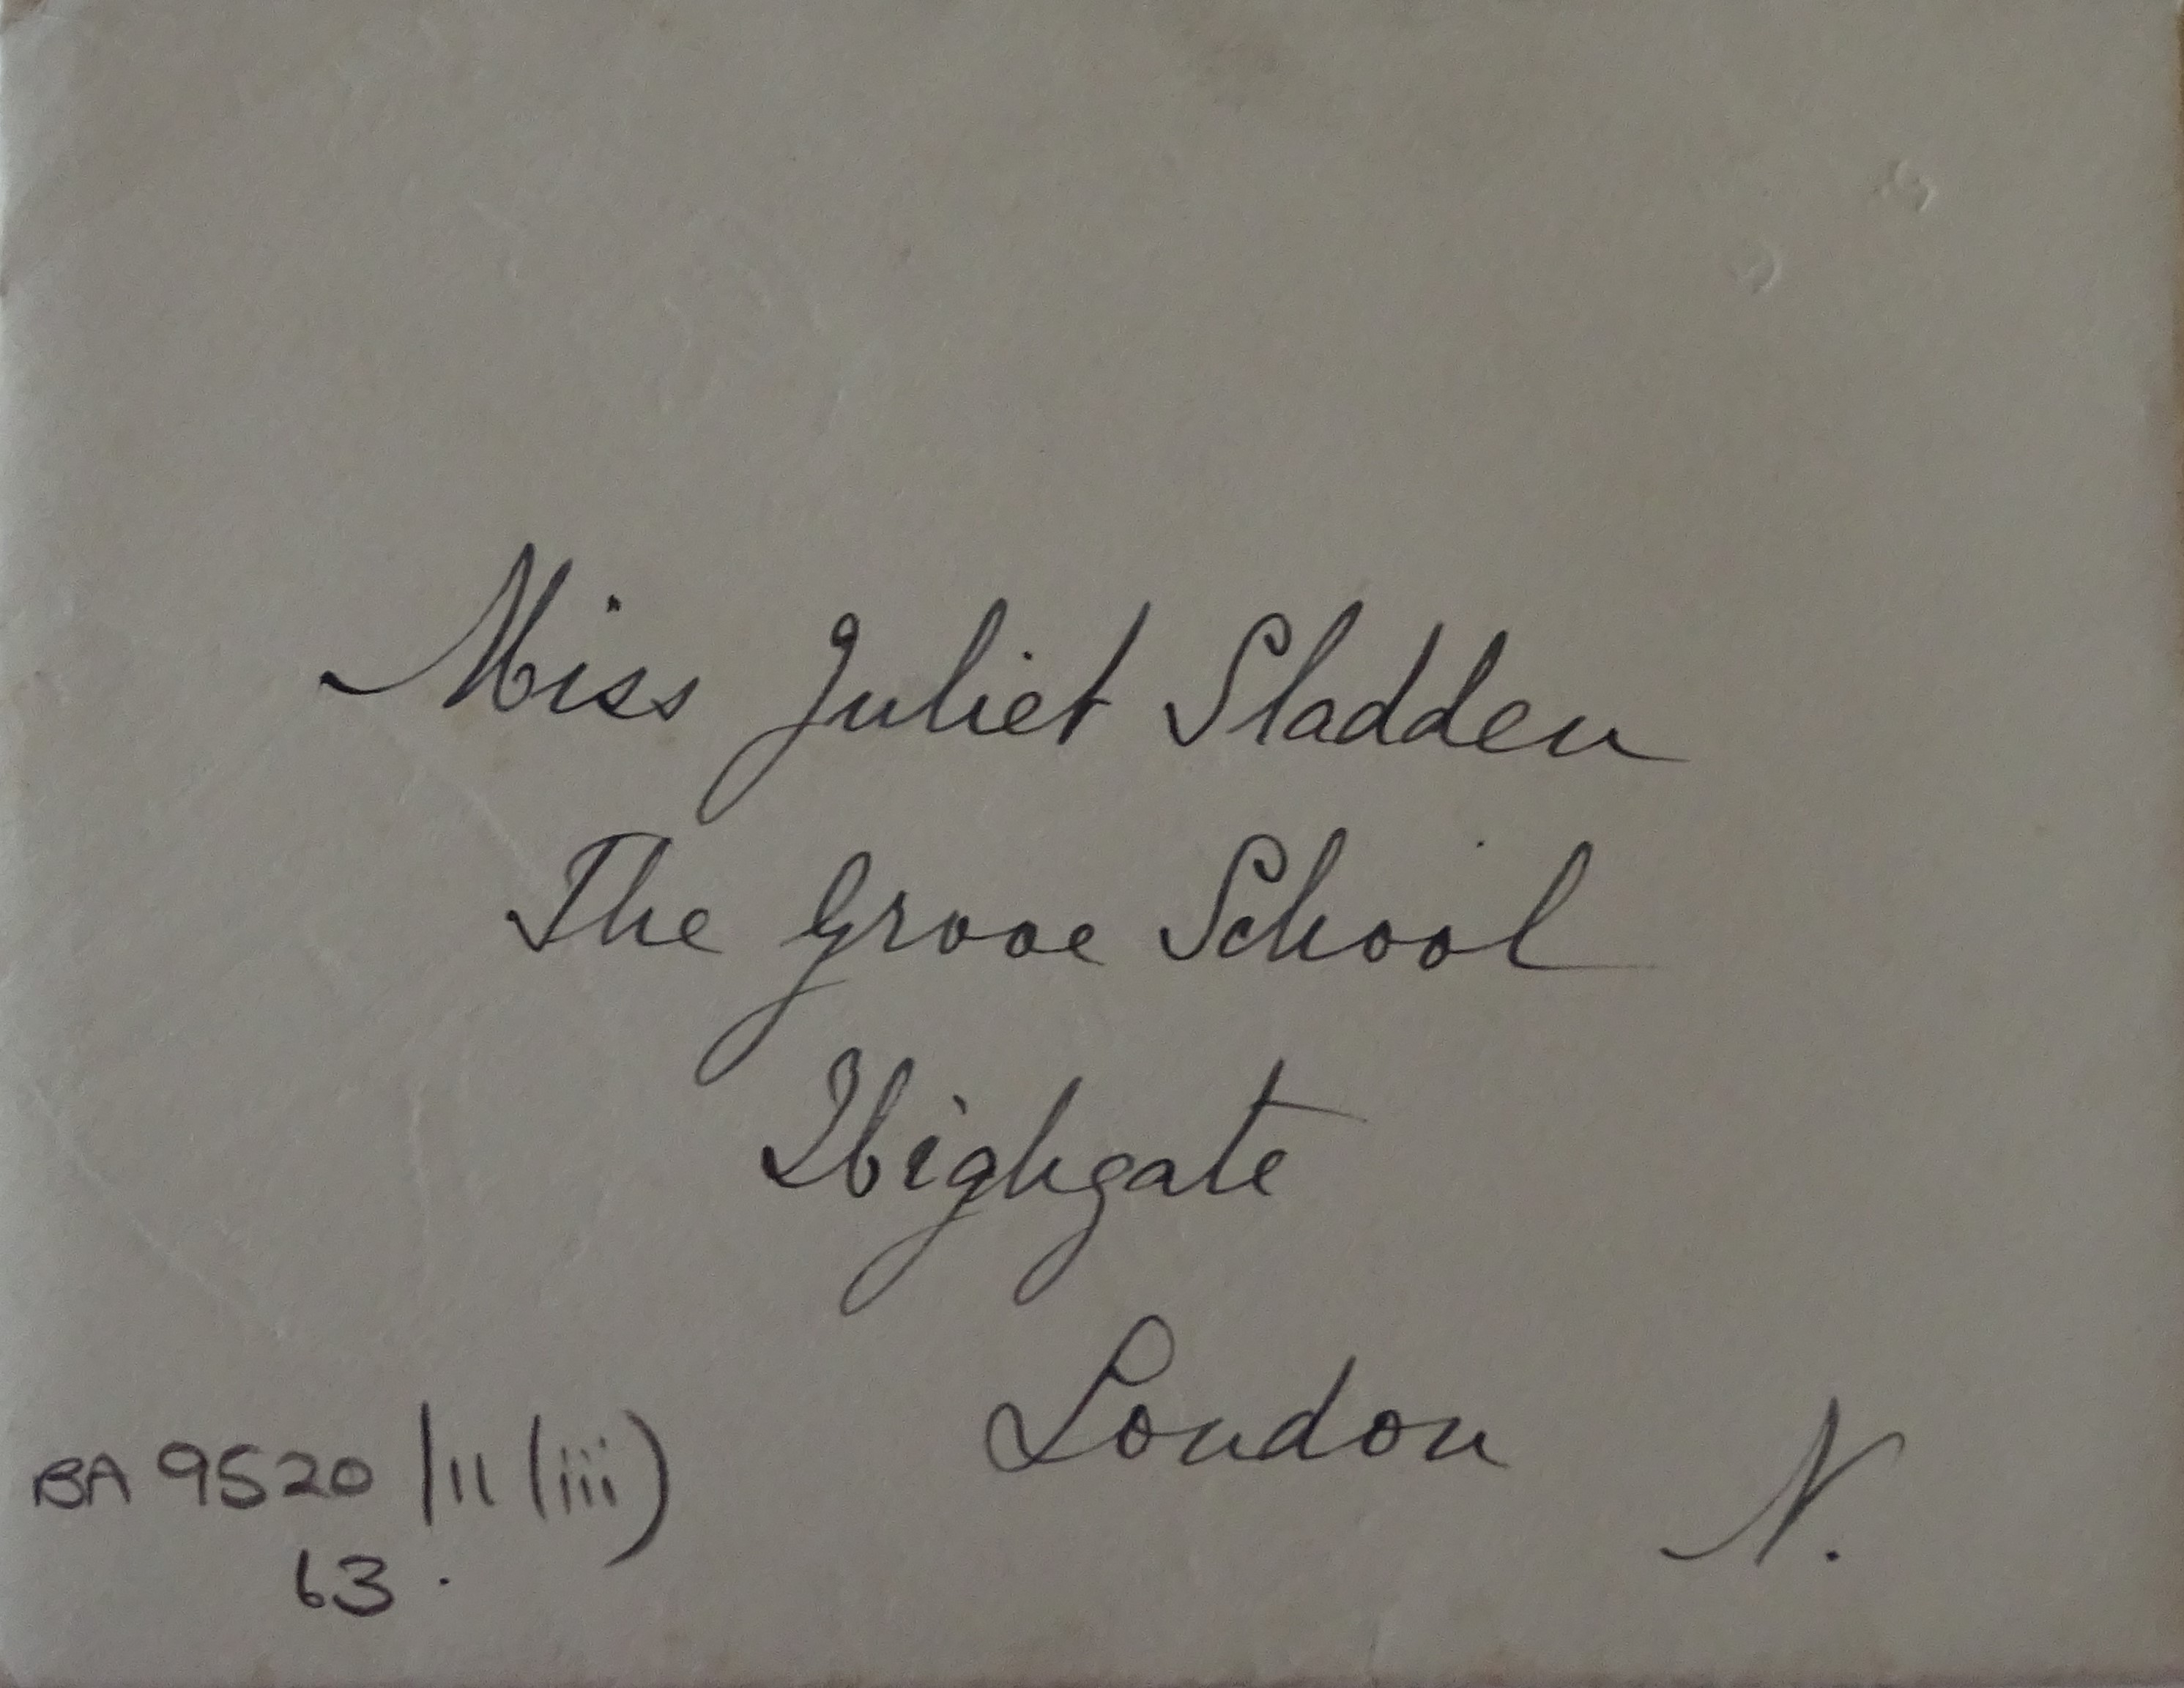 Miss Juliet Sladden
The Grove School
Highgate
London
N.
BA 9520/11(iii)
63.